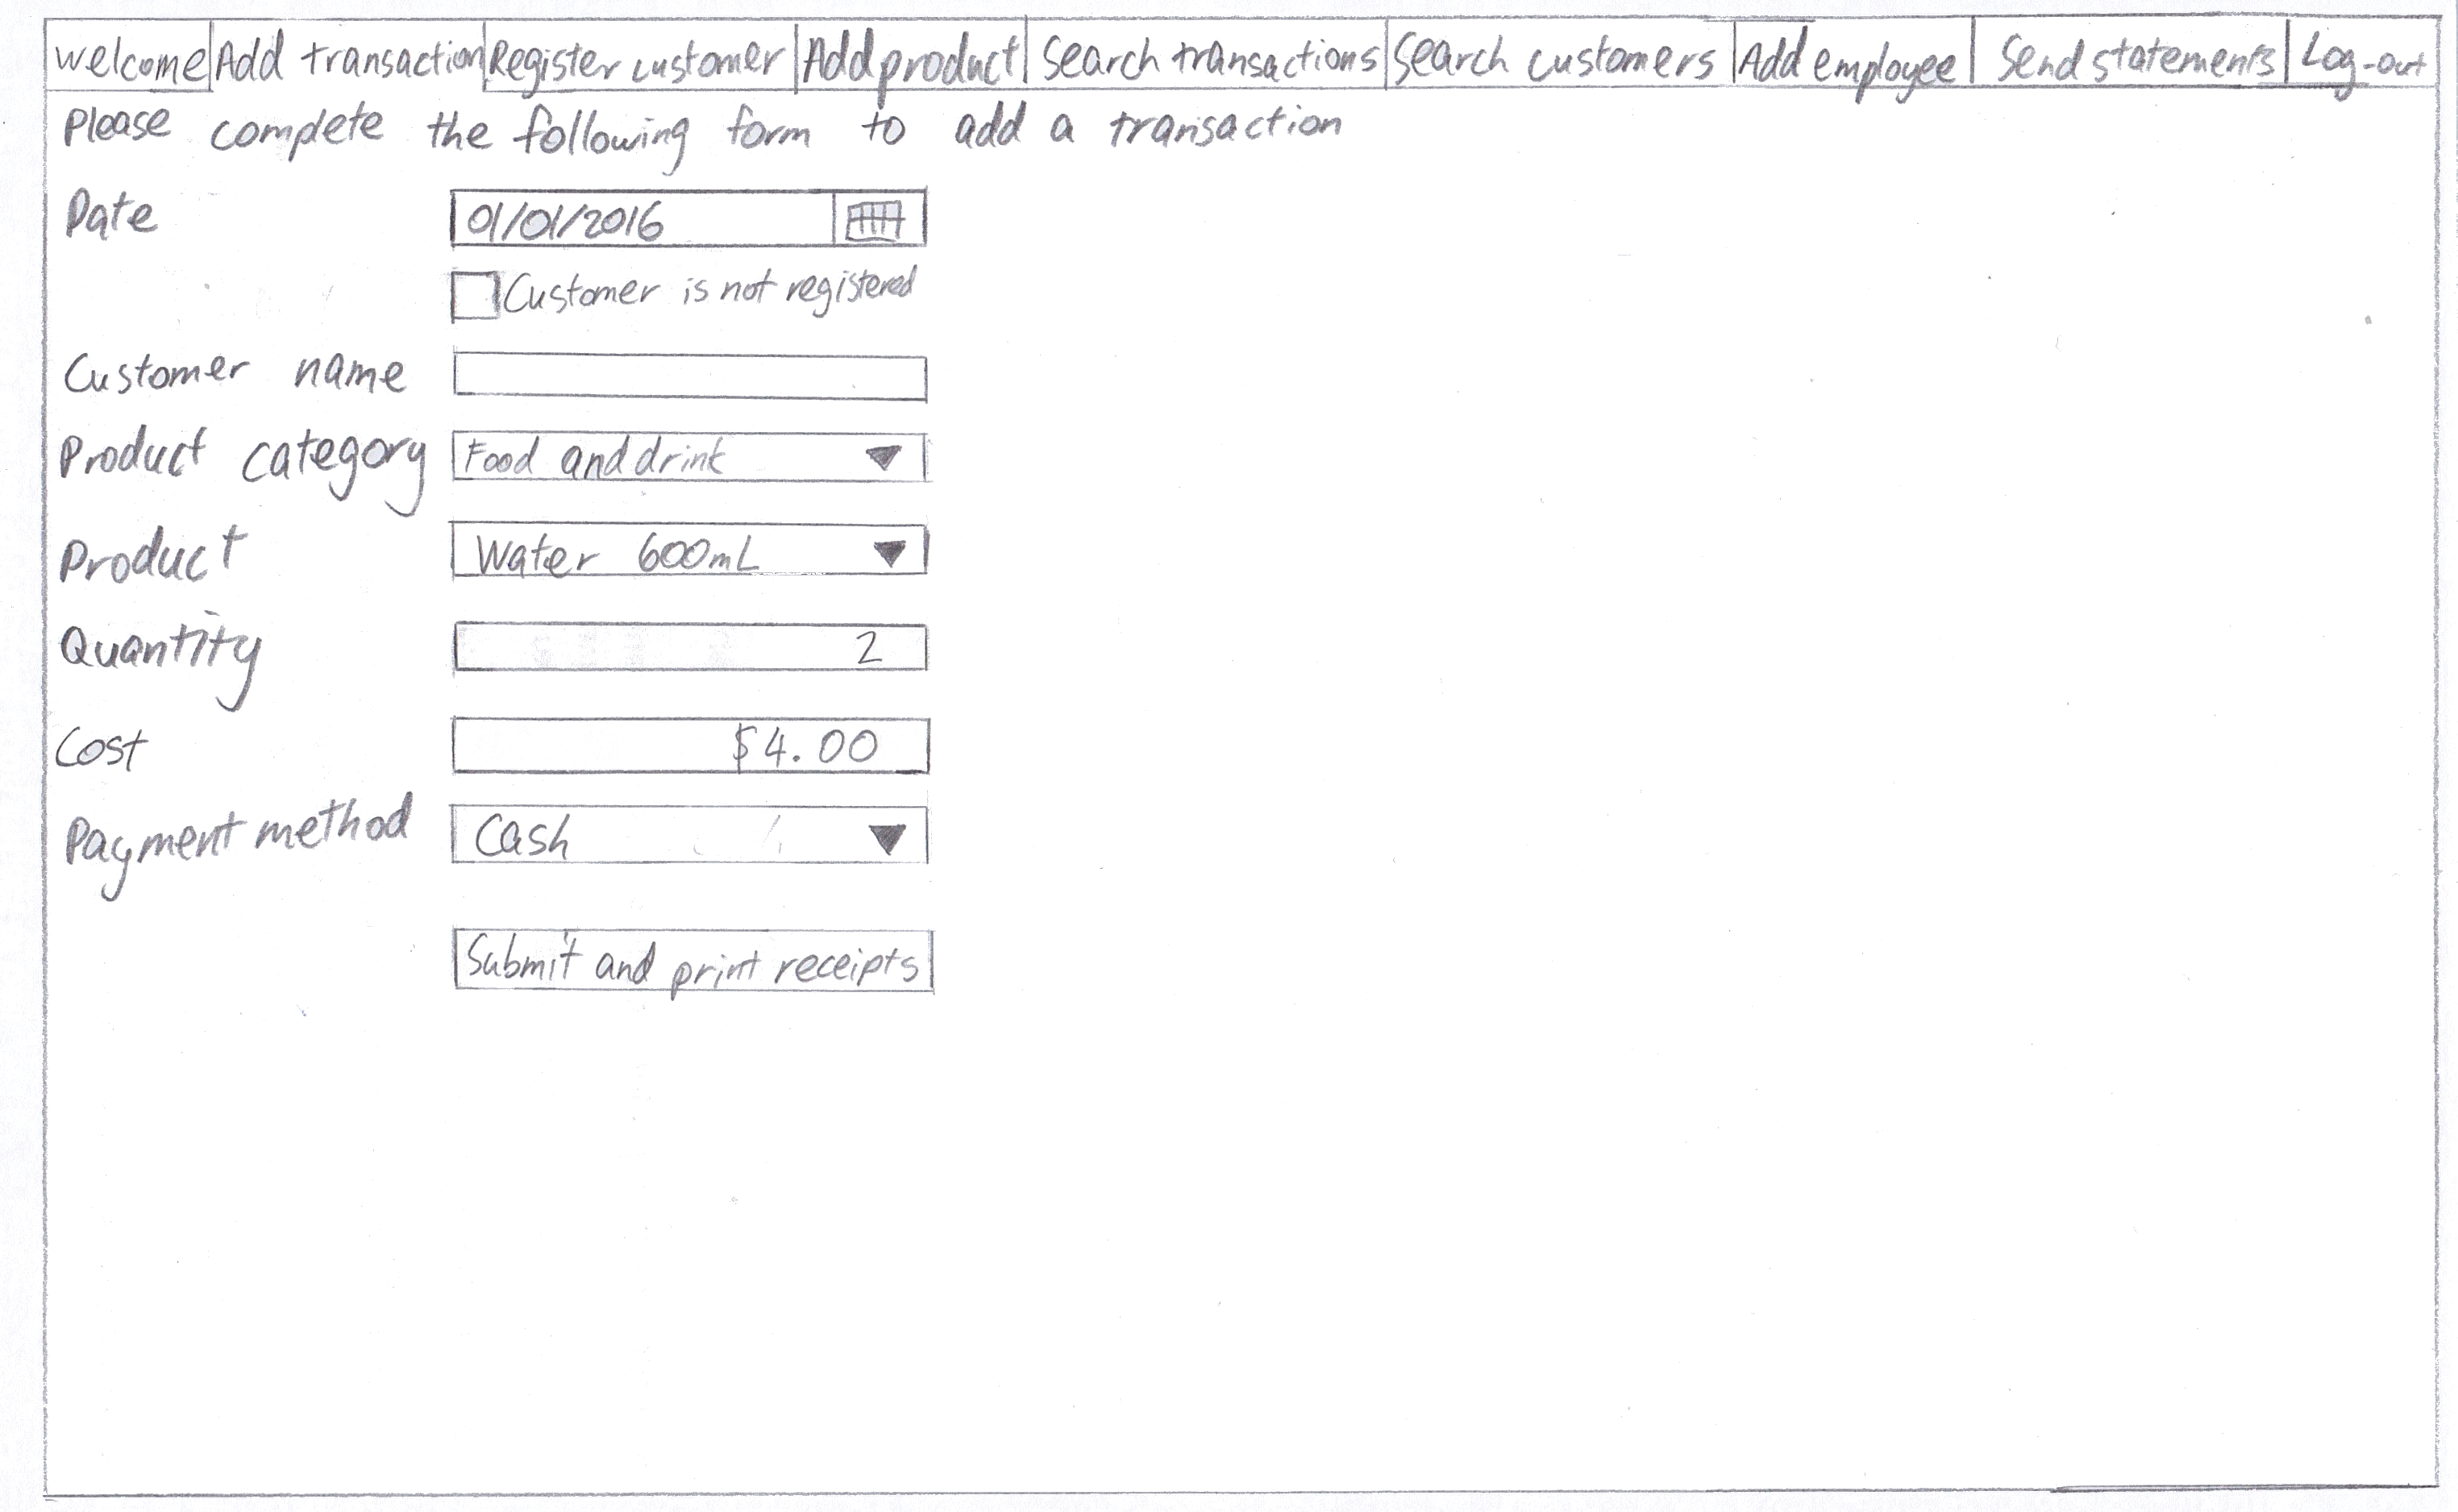 Welcome Add transaction Register customer Add product Search transactions Search customers Add employee Send statements Log-out
Please complete the following form to add a transaction
Date 01/01/2016
Customer is not registered
Customer name
Product category Food and drink
Product Water 600mL
Quantity 2
Cost $4.00
Payment method Cash
Submit and print receipts